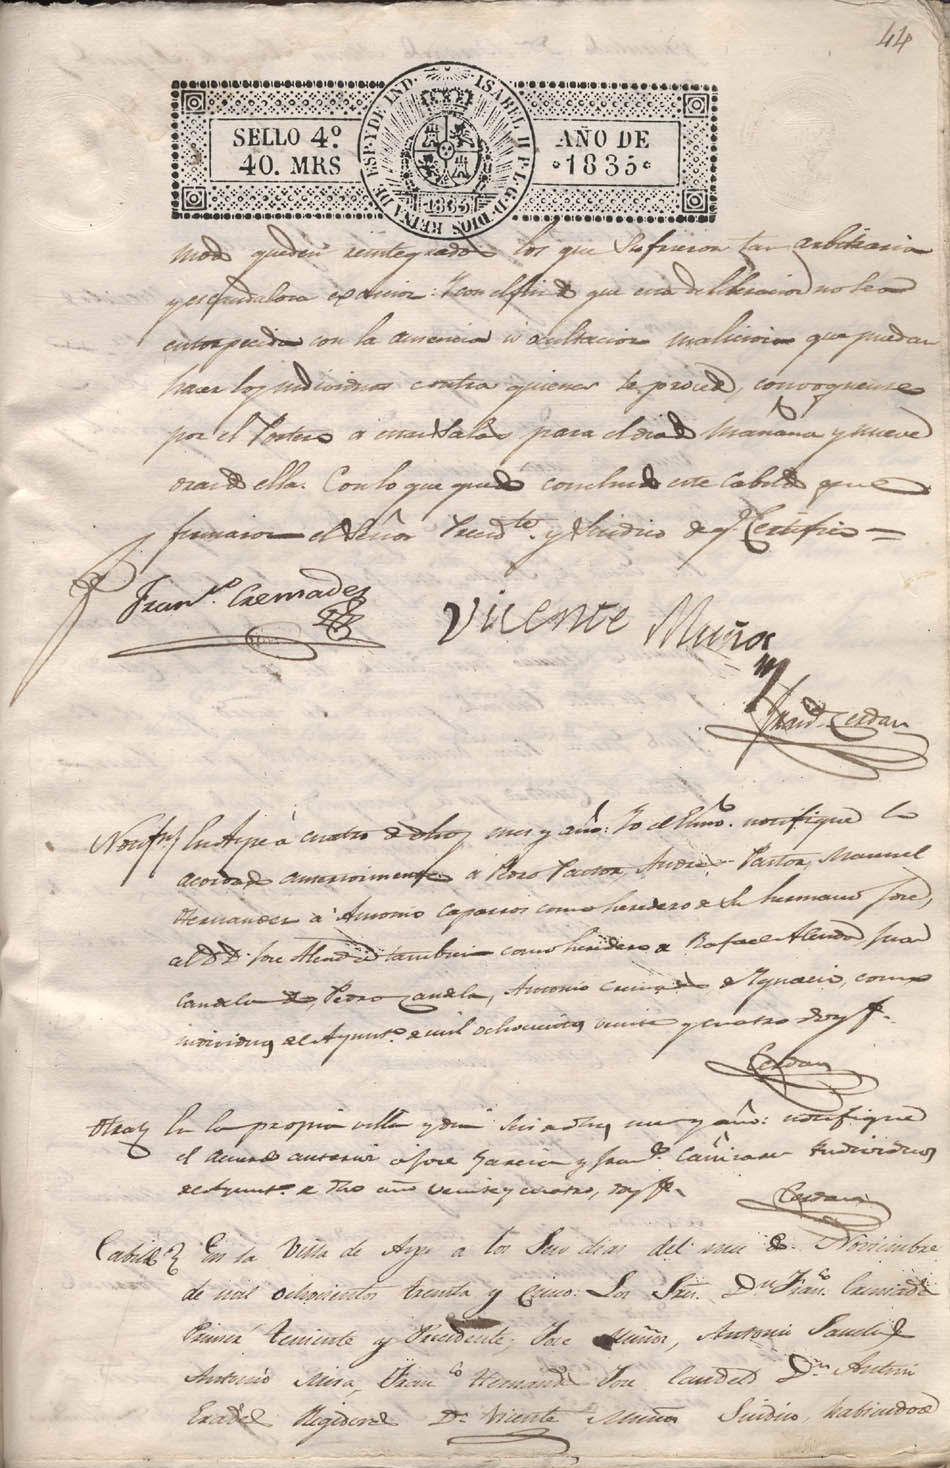 44
SELLO 4º 40. MRS
ISABEL II P. L. G. D. DIOS REINA DE ESP. Y DE IND.
1835
AÑO DE 1835
queden reintegrados los que sufrieron tan arbitraria
y escandalosa exaccion: Y con el fin de que esta deliberacion no sea
entorpecida con la ausencia ú ocultacion maliciosa que puedan
hacer los individuos contra quienes se procede, convoquense
por el Portero a esta Sala para el dia de mañana y nueve
oras de ella. Con lo que quedó concluido este Cabildo que
firmaron el Señor Presidte. y Sindico de q. Certifico =
Franco. Cremades
Vicente Muñoz
Cerdan
En Aspe á cuatro de dhos mes y año: Yo el Esno. notifiqué lo
acordado anteriormente a Roso Pastor, Andres Pastor, Manuel
Hernandez a Antonio Caparros como heredero de su hermano José,
al D. D. José Alenda tambien como heredero de Rafael Alenda, Juan
Candela, Pedro Candela, Antonio de Ygnacio, como
individuos del Ayunto. de mil ochocientos veinte y cuatro doy fe.
Cerdan
Otra En la propia villa y dia mes y año: notifiqué
el acuerdo anterior a José Garcia y Franco. Cañizares Individuos
del Ayunto. de dho año veinte y cuatro, doy fe.
Cerdan
Cabildo En la Villa de Aspe a los Seis dias del mes de Noviembre
de mil ochocientos treinta y cinco: Los Sres. Dn. Franco. Cremades
Primer Teniente y Presidente, José Muñoz, Antonio
Antonio Mira, Franco. Hernandez José Dn. Antonio
Regidores Dn. Vicente Muñoz Sindico, habiendose